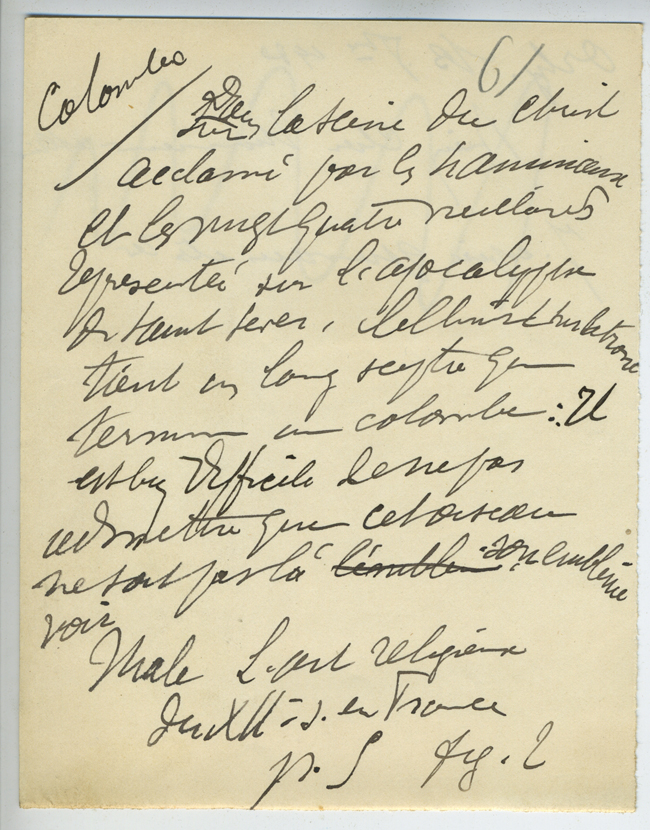 6/
Colombe
Dans
la scène du Christ
acclamé par les
et les vingt quatre vieillards
représentée sur l'apocalypse
de saint Sever, le Christ sur le trone
tient un long sceptre que
termine une colombe : Il
est bien difficile de ne pas
admettre que cet oiseau
ne soit pas là son emblème
voir
Male L'art religieux
du XII e s. en France
p. 5 fig. 2